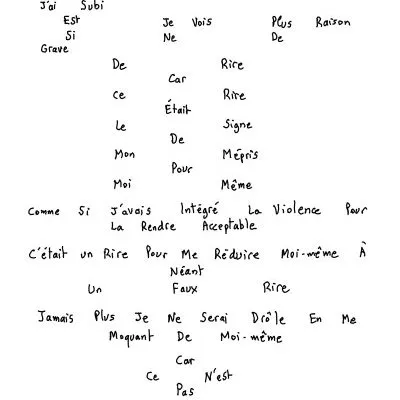 J'ai Subi
Est Je Vois Plus Raison
Si Ne De
Grave
De Rire
Car
Ce Rire
Était
Le Signe
De
Mon Mépris
Pour
Moi Même
Comme Si J'avais Intégré La Violence Pour
La Rendre Acceptable
C'était un Rire Pour Me Réduire Moi-même À
Néant
Un Faux Rire
Jamais Plus Je Ne Serai Drôle En Me
Moquant De Moi-même
Car
Ce N'est
Pas